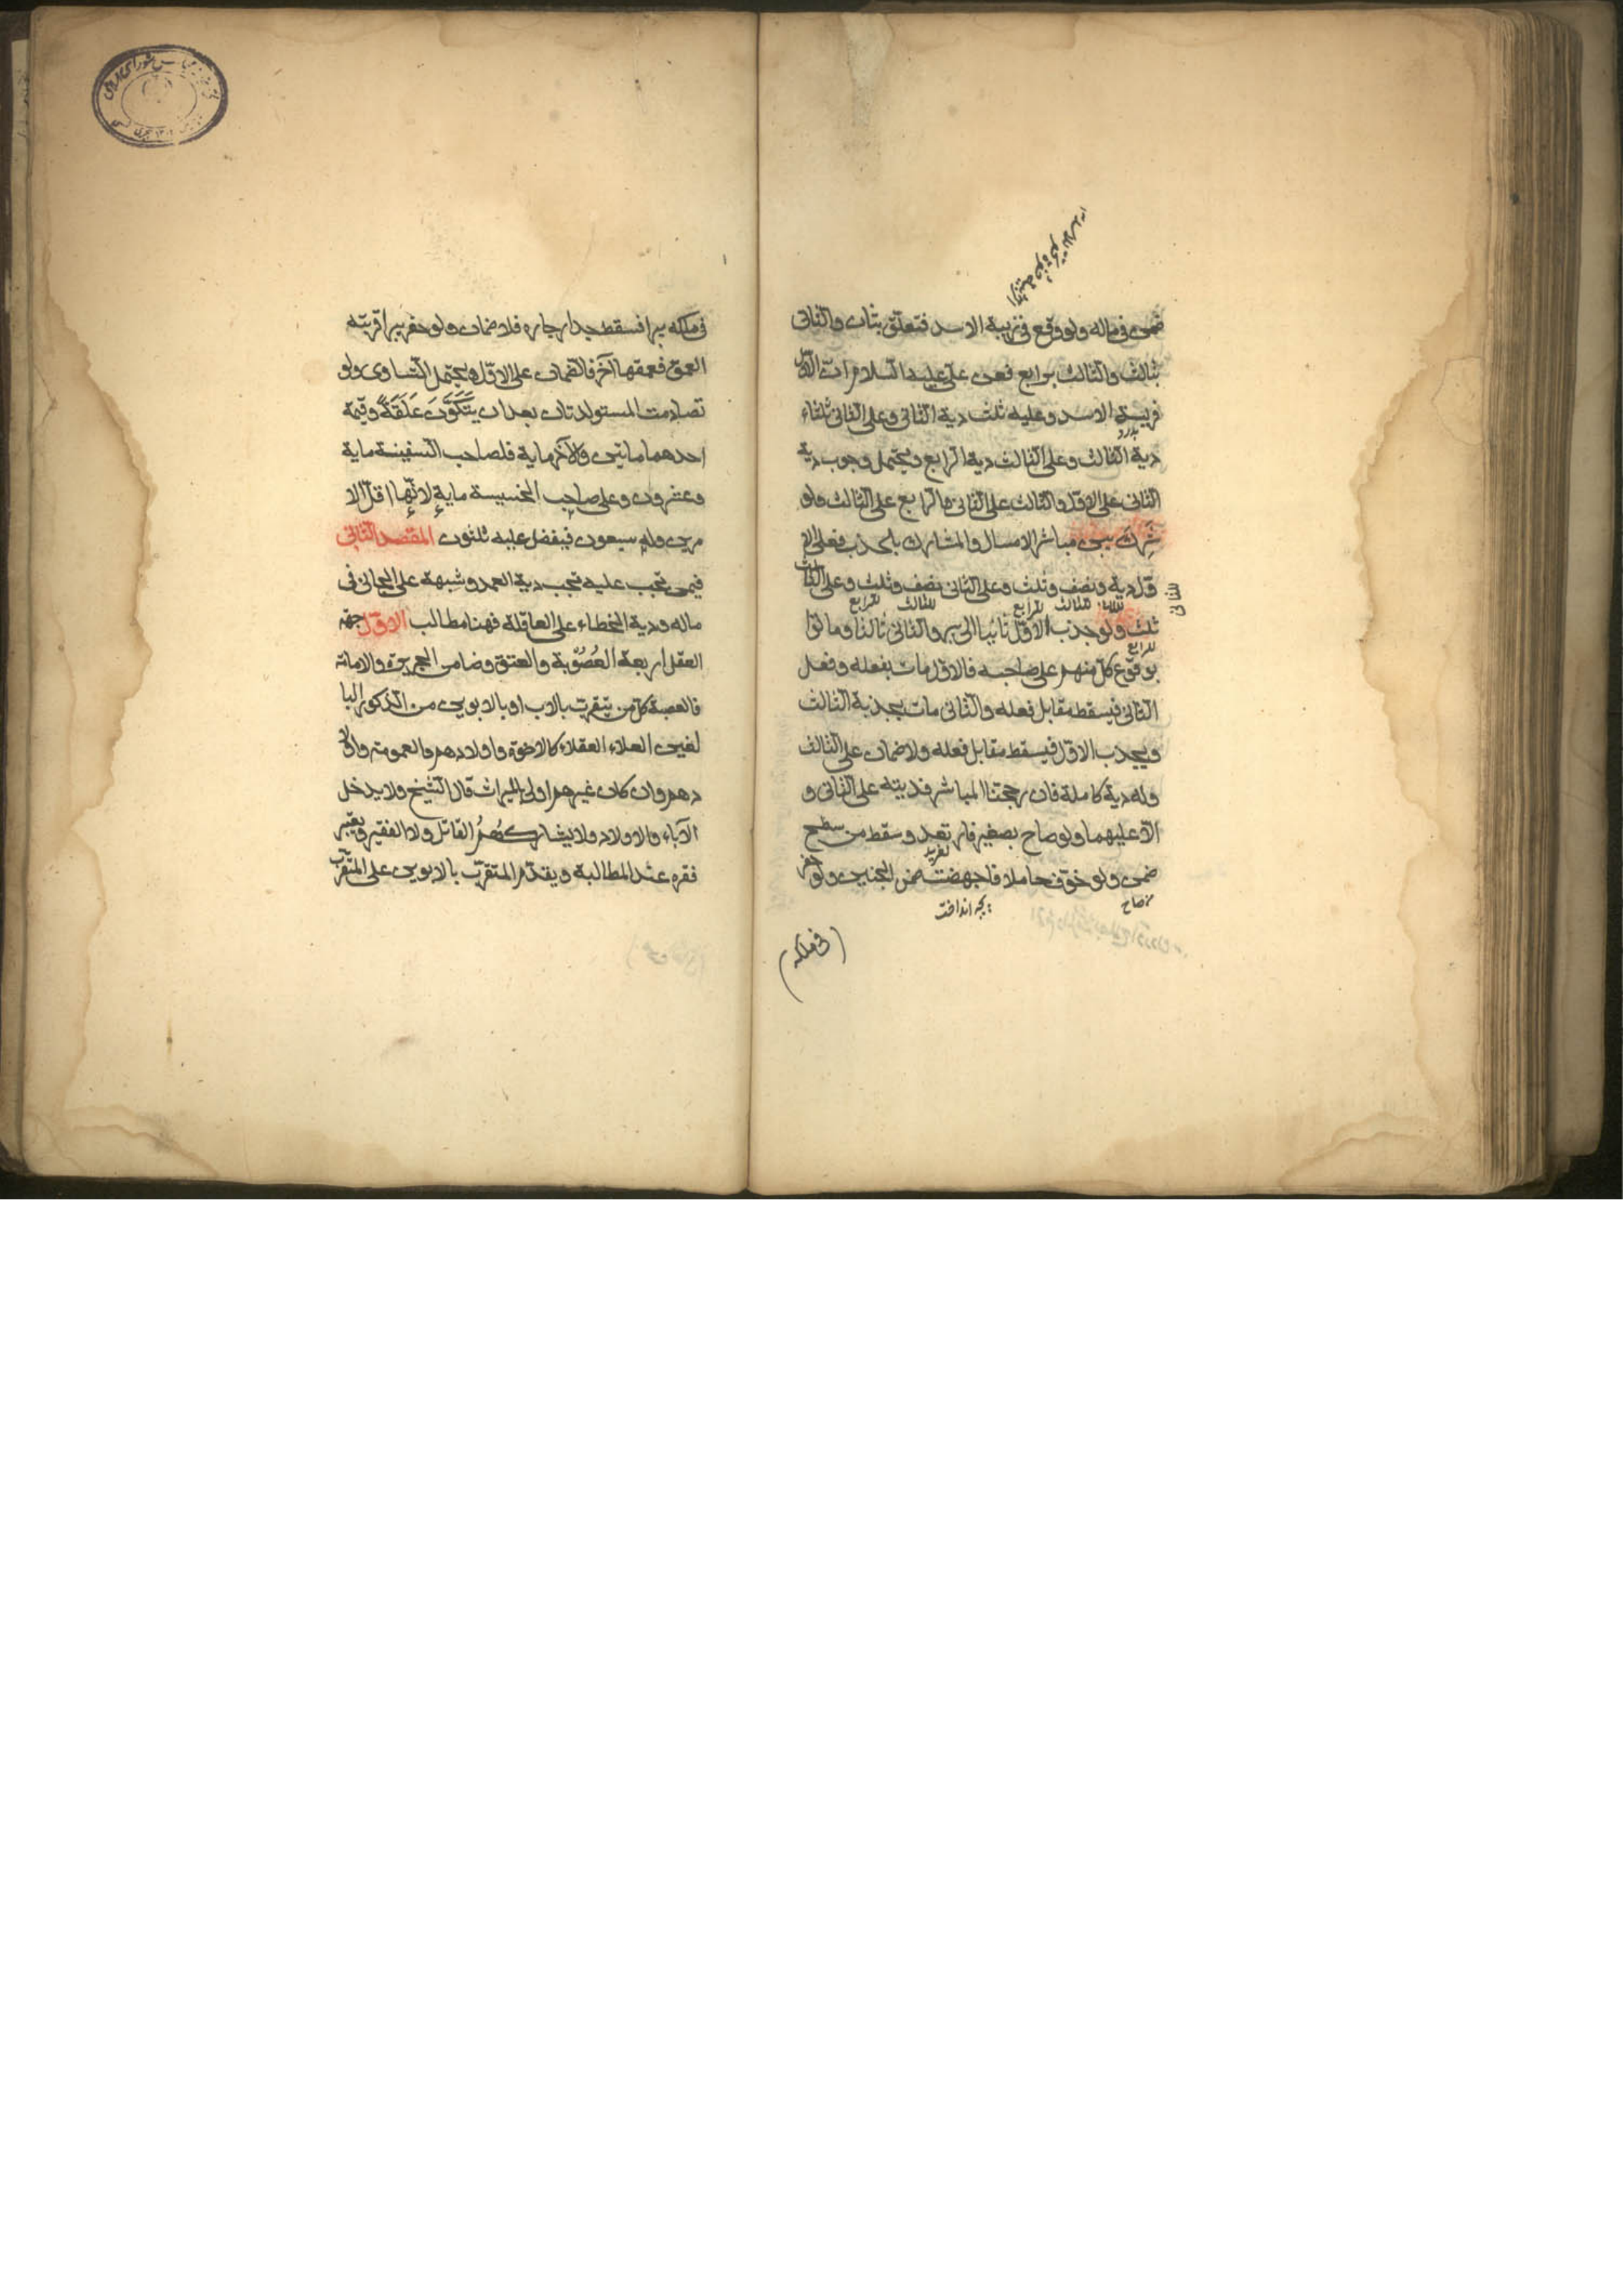 ضمن فی ماله ولو وقع فی زبیة الاسد فتعلق بثان والثانی
بثالث والثالث برابع فعن علی علیه السلام ان الاول
فریسة الاسد وعلیه ثلث دیة الثانی وعلی الثانی ثلثاء
دیة الثالث وعلی الثالث دیة الرابع ویحتمل وجوب دیة
الثانی علی الاول والثالث علی الثانی والرابع علی الثالث ولو
شرک بین مباشر الامساک والمشارک بالجذب فعلی الا
ول دیة ونصف وثلث وعلی الثانی نصف وثلث وعلی الثالث
للثانی
للثالث للرابع للثالث للرابع
ثلث ولو جذب الاول ثانیا الی بیر والثانی ثالثا وماتوا
للرابع
بوقوع کل منهم علی صاحبه فالاول مات بفعله وفعل
الثانی فیسقط مقابل فعله والثانی مات بجذبة الثالث
وبجذب الاول فیسقط مقابل فعله ولا ضمان علی الثالث
وله دیة کاملة فان رجحنا المباشر فدیته علی الثانی و
الا علیهما ولو صاح بصغیر فارتعد وسقط من سطح
ضمن ولو خوف حاملا فاجهضت ضمن الجنین ولو حفر
بچه انداخت
صاح
(فی ملکه)
فی ملکه بیرا فسقط جدار جاره فلا ضمان ولو حفر بیرا قریبة
العمق فعمقها آخر فالضمان علی الاول ویحتمل التساوی ولو
تصادمت المستولدتان بعد ان یَتَکَوَّنَ عَلَقَةً وقیمة
احدهما مائتین والآخر مایة فلصاحب النفیسة مایة
وعشرون وعلی صاحب الخسیسة مایة لانها اقل الا
مرین وله سبعون فیفضل علیه ثلثون المقصد الثانی
فیمن تجب علیه تجب دیة العمد وشبهه علی الجانی فی
ماله ودیة الخطاء علی العاقلة فهنا مطالب الاول جهة
العقل اربعة العُصُوْبة والعتق وضامن الجریرة والامامة
فالعصبة کل من یتقرب بالاب او بالابوین من الذکور البا
لغین العقلاء کالاخوة واولادهم والعمومة واولا
دهم وان کان غیرهم اولی بالمیراث قال الشیخ ولا یدخل
الآباء والاولاد ولا یشارکهُمُ القاتل ولا الفقیر ویعتبر
فقره عند المطالبة ویقدم المتقرب بالابوین علی المتقرب